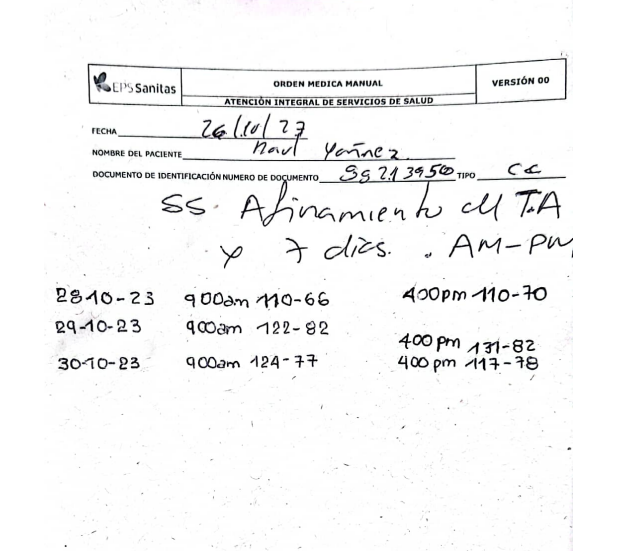 EPS Sanitas
ORDEN MEDICA MANUAL
VERSIÓN 00
ATENCIÓN INTEGRAL DE SERVICIOS DE SALUD
FECHA 26/10/23
NOMBRE DEL PACIENTE Yañnez
DOCUMENTO DE IDENTIFICACIÓN NUMERO DE DOCUMENTO TIPO CC
SS. Afinamiento TA
x 7 dias. AM-PM
28-10-23 900am 110-66 400pm 110-70
29-10-23 900am 122-82 400 pm 131-82
30-10-23 900am 124-77 400 pm 117-78